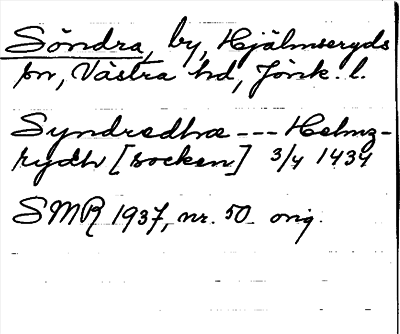 Söndra, by, Hjälmseryds
sn, Västra hd, Jönk. l.
Syndredhæ --- Helmz-
rydh [socken] 3/4 1434
SMR 1937, nr. 50 orig.